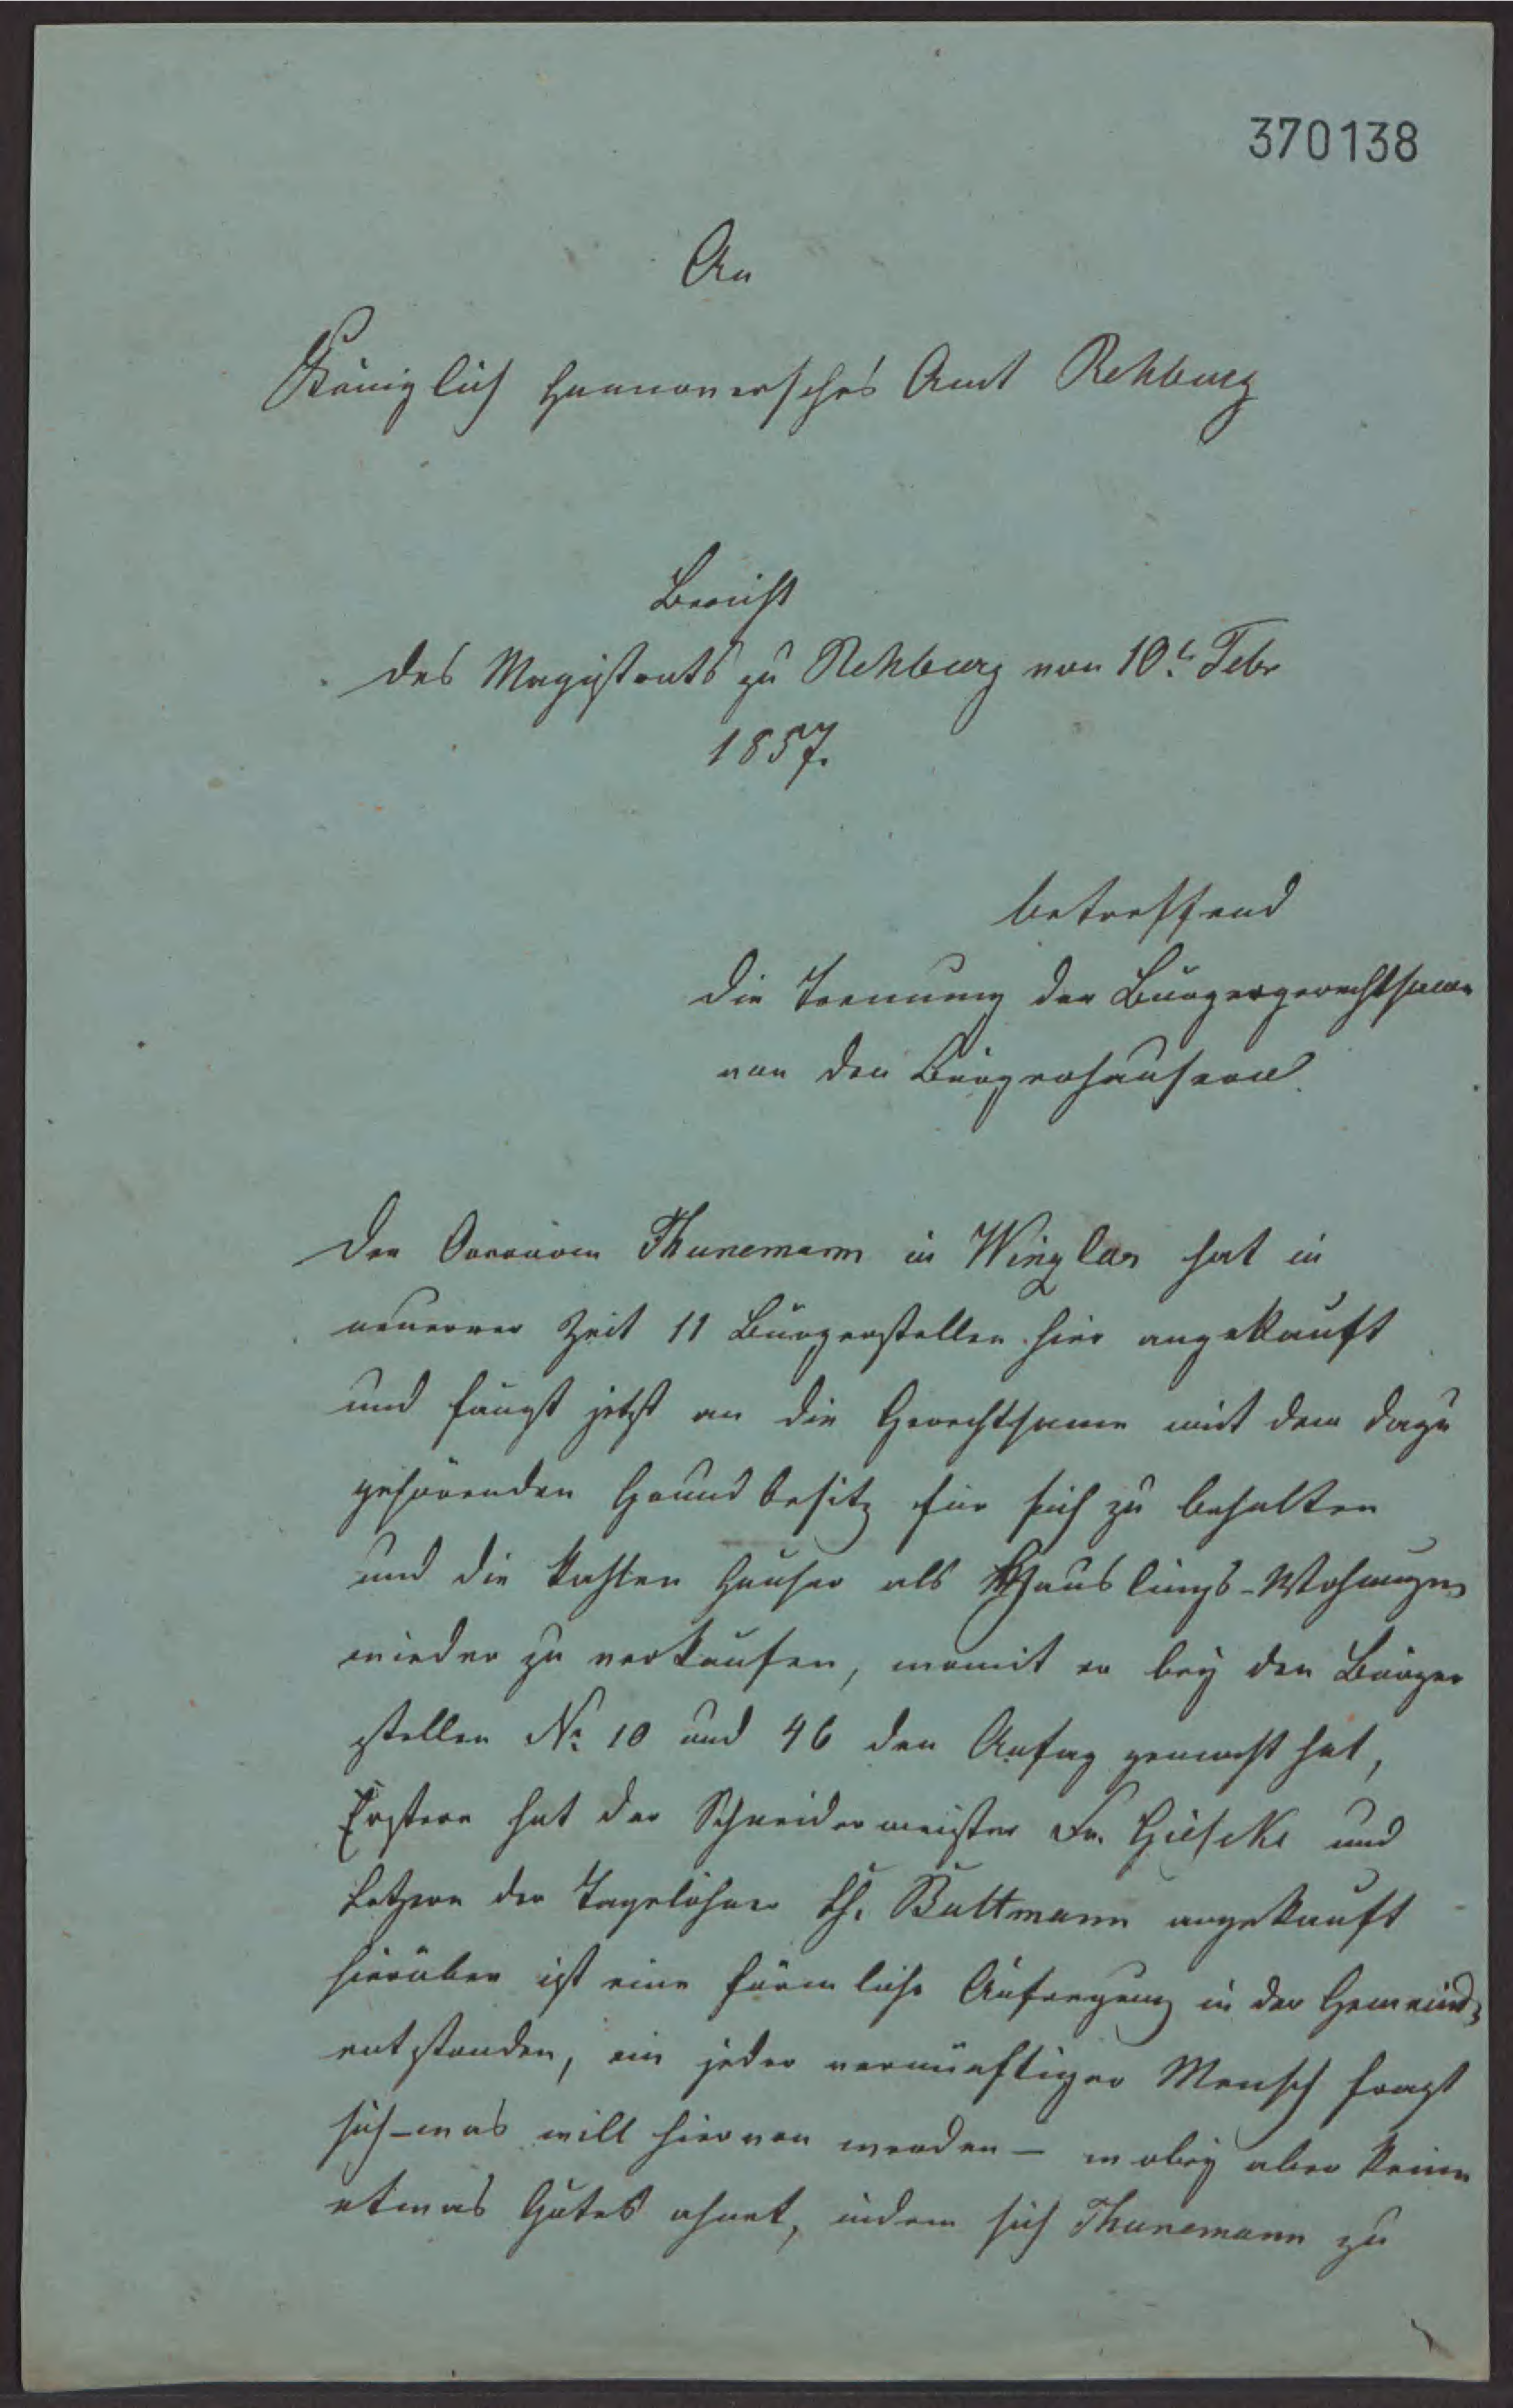 370138
An
Königlich Hannoversches Amt Rehburg
Bericht
des Magistrats zu Rehburg von 10t Febr
1857.
betreffend
die Trennung der Bürgergerechtsame
von den Bürgerhäusern
Der Thunemann in Winzlar hat in
neuerer Zeit 11 Bürgerstellen hier angekauft
und fängt jetzt an die Gerechtsame mit dem dazu
gehörenden Grundbesitz für sich zu behalten
und die kahlen Häuser als Häuslings-Wohnungen
wieder zu verkaufen, womit er bey den Bürger
stellen No 10 und 46 den Anfag gemacht hat,
Erstere hat der Schneidermeister Fr. Gieseke und
Letzere der Tagelöhner Bultmann angekauft
hierüber ist eine förmliche Aufregung in der Gemeinde
entstanden, ein jeder vernünftiger Mensch fragt
sich – was will hiervon werden – wobey aber keiner
etwas Gutes ahnet, indem sich Thunemann zu